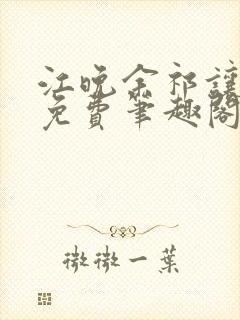 江晚余祁让
免费笔趣阁
微微一叶